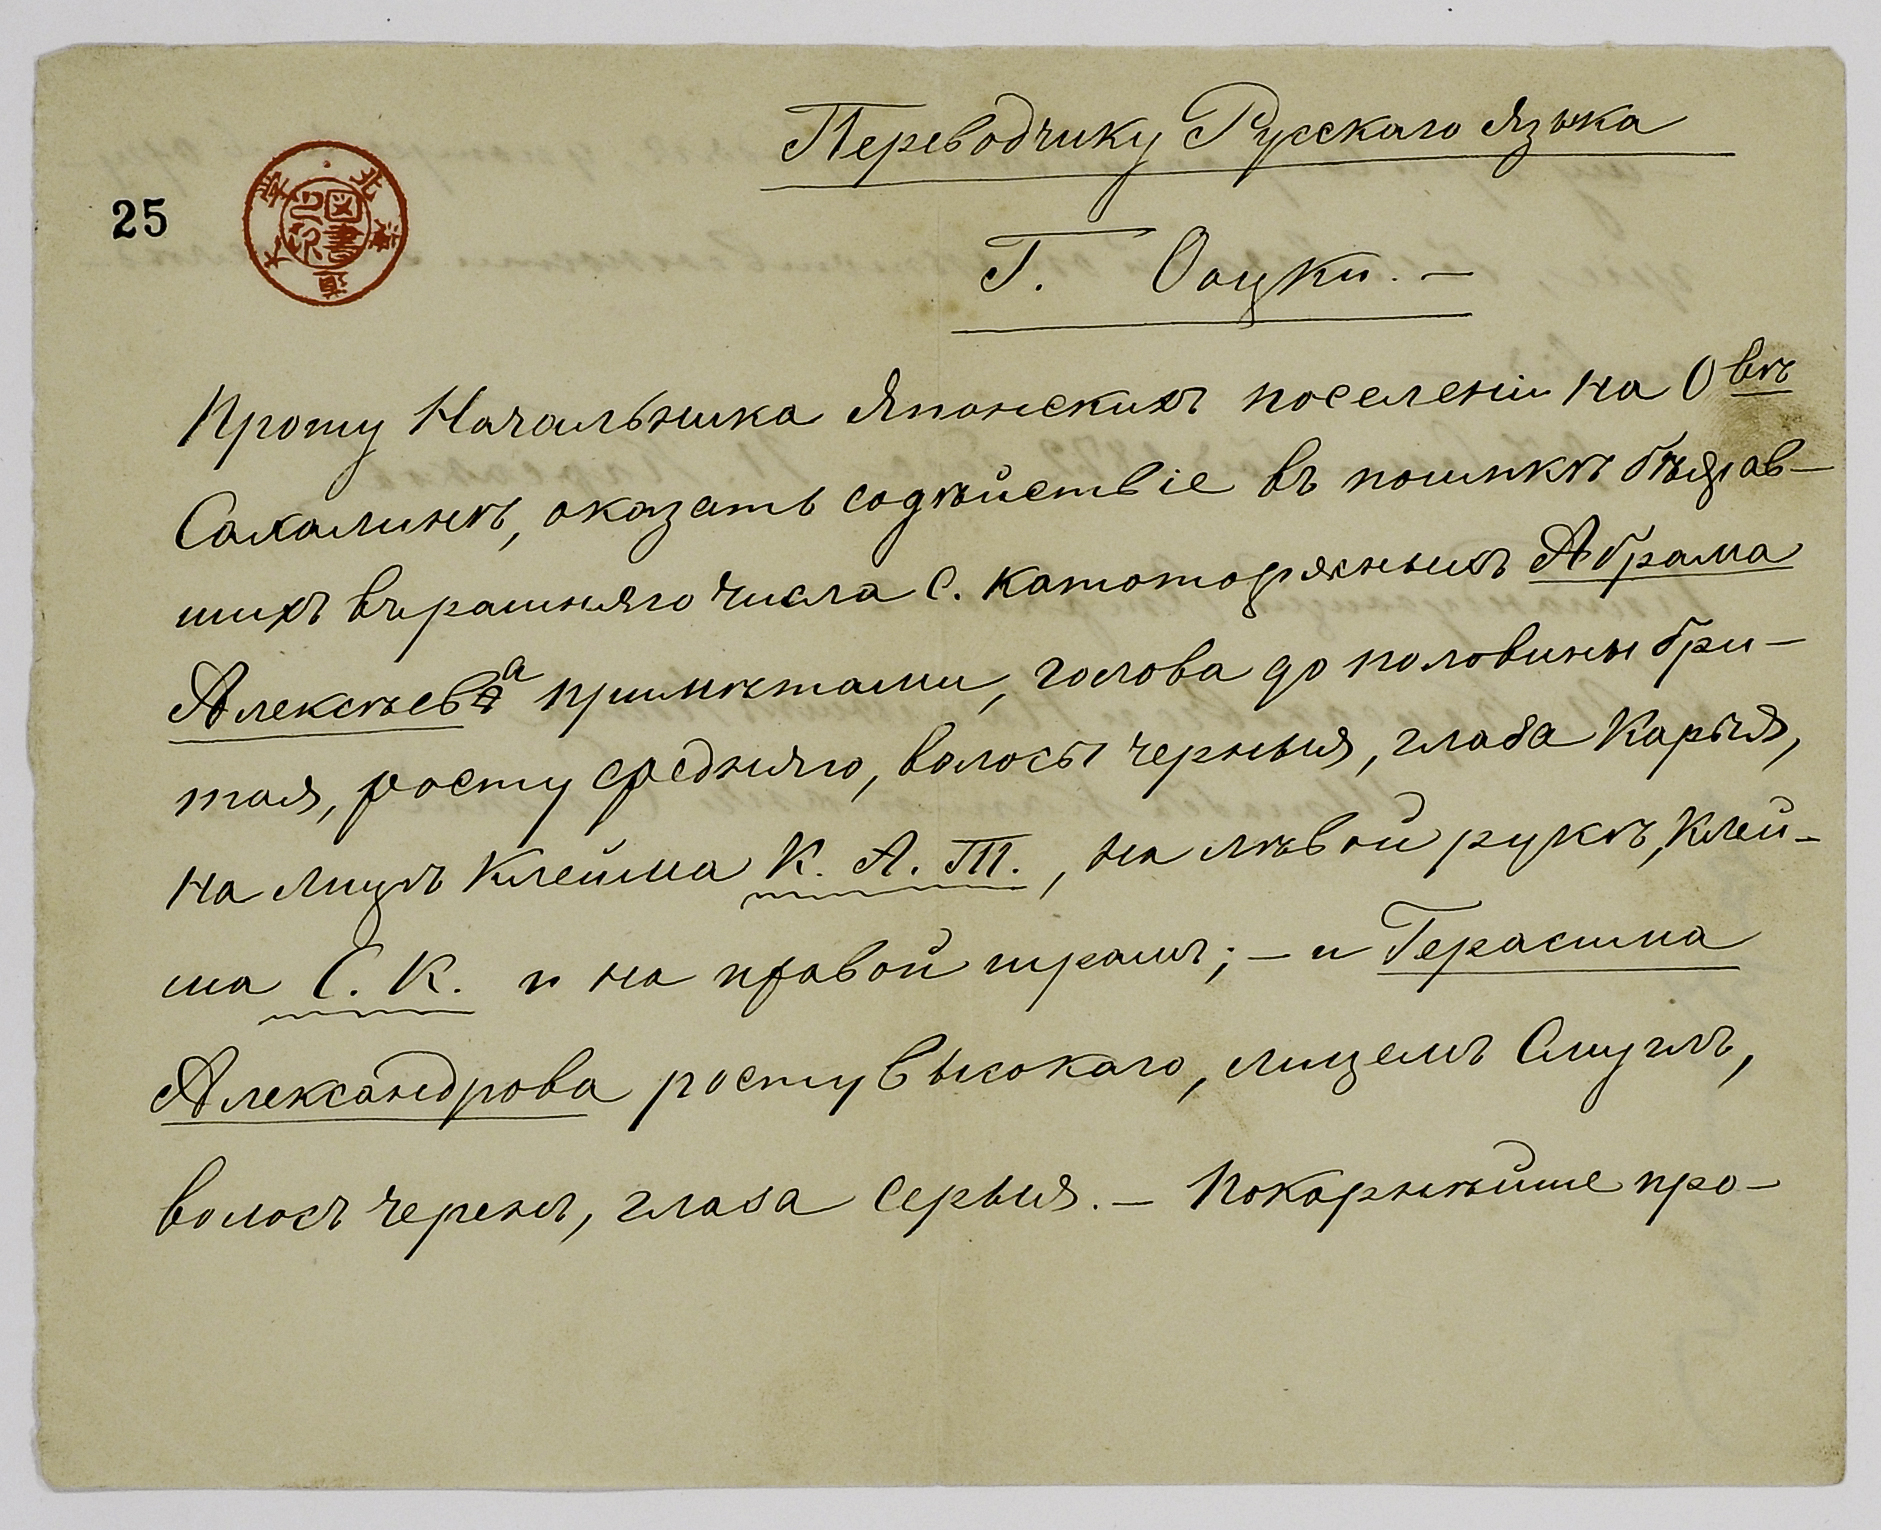 Переводчику Русскаго языка
25
北海道大學
圖書之印
Г. Оацки. —
Прошу Начальника Японскихъ поселенiи на Овѣ
Сахалинѣ, оказать содѣйствiе въ поимкѣ бѣжав-
шихъ вчерашняго числа с. каторожныхъ Абрама
Алексѣева примѣтами, голова до половины бри-
тая, росту средняго, волосы черныя, глаза Карыя,
на лицѣ Клейма К. А. Т., на лѣвой рукѣ, Клей-
ма С. К. и на правой шрамъ; — и Герасима
Александрова росту Высокаго, лицемъ Смуглъ,
волосъ черенъ, глаза Серыя. — Покорнѣйше про-